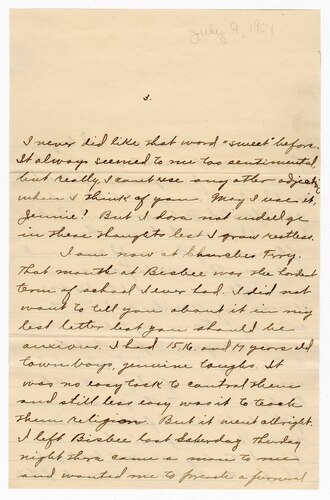 July 9, 1904
3.
I never did like that word "sweet" before.
It always seemed to me too sentimental
but really I cant use any other adjective
when I think of you. May I use it,
Jennie? But I dara not indulge
in these thoughts lest I grow restless.
I am now at Churches Ferry.
That month at Bisbee was the hardest
term of school I ever had. I did not
want to tell you about it in my
last letter lest you should be
anxious. I had 15, 16, and 17 years old
town boys, genuine toughs. It
was no easy task to control them
and still less easy was it to teach
them religion. But it went allright.
I left Bisbee last Saturday.
night there came a man to me
and wanted me to preach a funeral